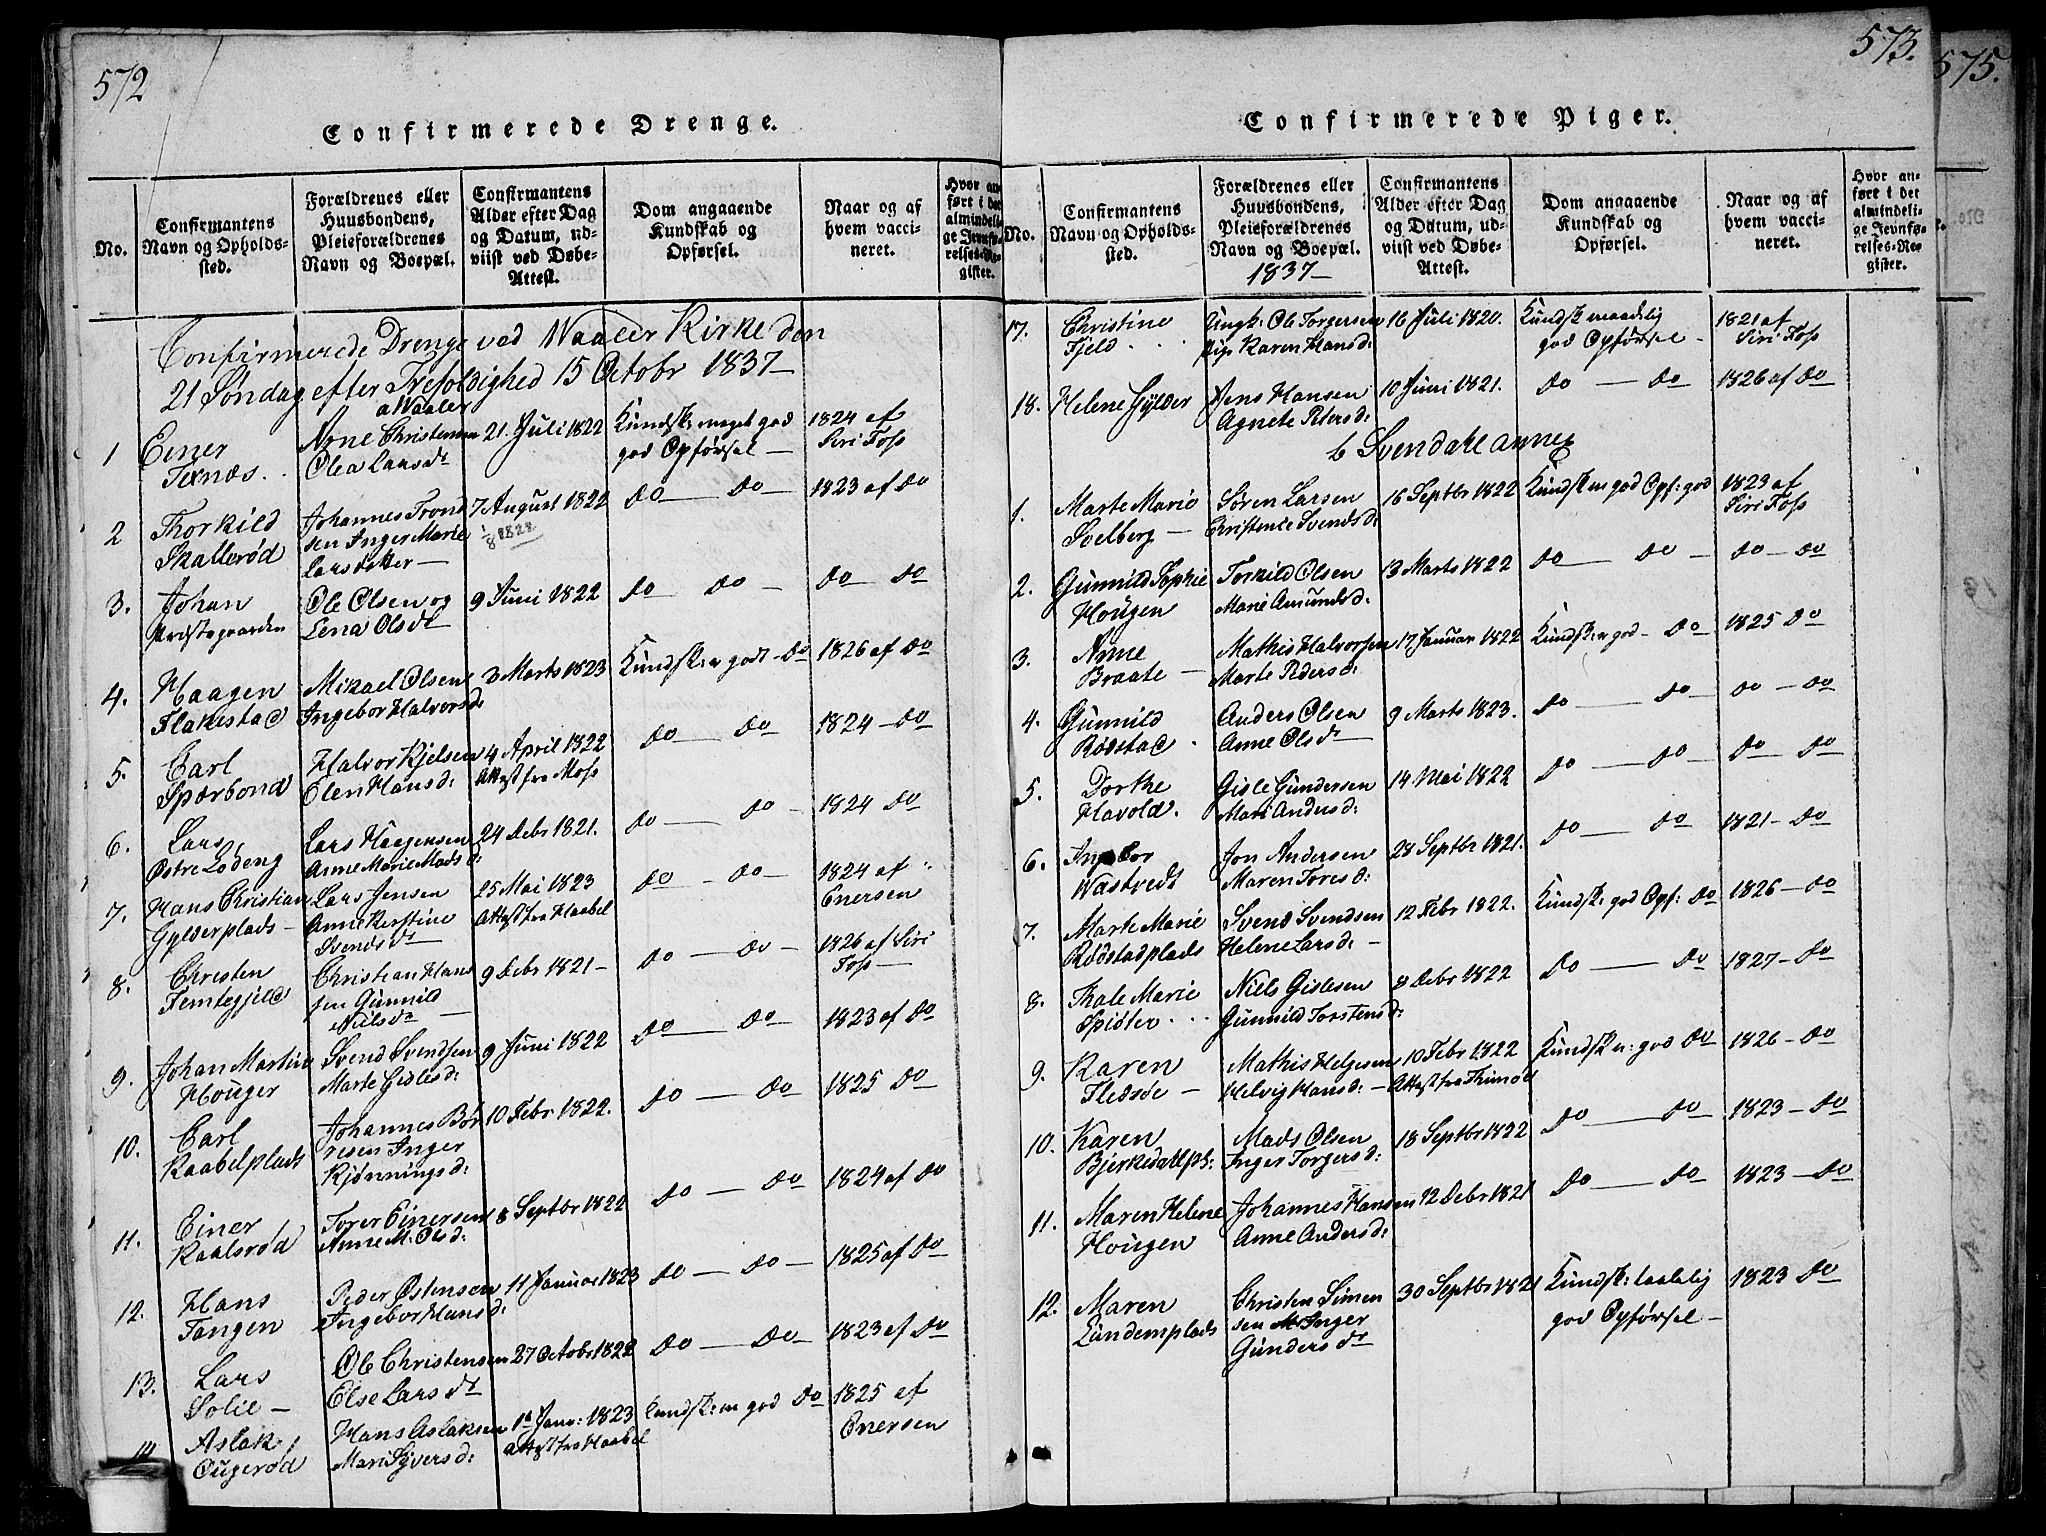 572
Confirmerede Drenge.
No.
Confirmantens
Navn og Opholds-
sted.
Forældrenes eller
Huusbondens,
Pleieforældrenes
Navn og Boepæl.
Confirmantens
Alder efter Dag
og Datum, ud-
viist ved Døbe-
Attest.
Dom angaaende
Kundskab og
Opførsel.
Naar og af
hvem vacci-
neret.
Hvor an
ført i det
almindeli-
ge Jevnfø-
relses-Re-
gister.
Confirmerede Drenge ved Waaler Kirke den
21 Søndag efter Trefoldighed 15 Octobr 1837 —
a Waaler
1 Einer
Texnæs.
Arne Christensen
Olea Larsdr
21. Juli 1822
Kundsk: meget god
god Opførsel —
1824 af
Siri Foss
2 Thorkild
Skallerød
Johannes Trond
sen Inger Marie
Larsdatter —
7 August 1822
1/8 1822
do — do —
1823 af do
3. Johan
Præstegaarden
Ole Olsen og
Lena Olsdr
9 Juni 1822
do — do —
do — do
4. Haagen
Flakestad
Mikael Olsen
Ingebor Halvorsd:
3 Marts 1823
Kundsk: n godt - do
1826 af do
5. Carl
Spærbond
Halvor Kjelsen
Elen Hansd:
4 April 1822
Attest fra Moss
do — do
1824 — do
6. Lars
Østre Lødeng
Lars Haagensen
Anne Marie Madsd:
24 Debr 1821.
do — do —
1824 do
7. Hans Christian
Gylderplads —
Lars Jensen
Anne Kirstine
Svendsdr
25 Mai 1823
Attest fra Haabel
do — do —
1824 af
Enersen
8. Christen
Femtegjeld
Christian Hans
sen Gunnild
Nielsdr —
9 Debr 1821 —
do — do —
1826 af Siri
Foss —
9. Johan Martin
Houger
Svend Svendsen
Marte Gislesd:
9 Juni 1822
do — do
1823 af do
10. Carl
Kaabelplads
Johannes Bør
resen Inger
Kjønningsd:
10 Febr 1822.
do — do
1825 do
11. Einer
Raalsrød
Torer Einersen
Anne M. Olsd:
8 Septbr 1822
do — do
1824 af do
12. Hans
Tangen
Peder Østensen
Ingebor Hansd:
11 Januar 1823
do — do —
1825 af do
13. Lars
Solie —
Ole Christensen
Else Larsdr
27 Octobr 1822
do — do
1823 af do
14 Aslak
Ougerød
Hans Aslaksen
Mari Syversd:
1 Janr: 1823
Attest fra Haabel
Kundsk: m god do
1825 af
Enersen
573.
575.
Confirmerede Piger.
No.
Confirmantens
Navn og Opholds-
sted.
Forældrenes eller
Huusbondens,
Pleieforældrenes
Navn og Boepæl.
1837 —
Confirmantens
Alder efter Dag
og Datum, ud-
viist ved Døbe-
Attest.
Dom angaaende
Kundskab og
Opførsel.
Naar og af
hvem vacci-
neret.
Hvor an-
ført i det
almindeli-
ge Jevnfø-
relses-Re-
gister.
17. Christine
Fjeld . .
Ungk: Ole Torgersen
Pige Karen Hansd:
16 Juli 1820.
Kundsk maadelig
god Opførsel —
1821 af
Siri Foss
18. Helene Gylder
Jens Hansen
Agnete Petersd:
10 Juni 1821.
do — do
1826 af do
b Svendahl annex
1. Marte Marie
Soelberg —
Søren Larsen
Christence Svendsd:
16 Septbr 1822
Kundsk m god Opf: god
1823 af
Siri Foss
2. Gunnild Sophie
Hougen
Torkild Olsen
Marie Amundsd:
13 Marts 1822
do — do —
do — do
3. Anne
Braate —
Mathis Halvorsen
Marte Pedersd:
17 Januar 1822
Kundsk: n god — do
1825 do
4. Gunnild
Rødstad .
Anders Olsen
Anne Olsdr
9 Marts 1823.
do — do —
do — do
5. Dorthe
Havold.
Gisle Gundersen
Mari Andersd:
14 Mai 1822
do — do
do — do
6. Ingebor
Wastvedt
Jon Andersen
Maren Toresd:
28 Septbr 1821.
do — do
1821 — do
7. Marte Marie
Rødstadplads
Svend Svendsen
Helene Larsd: —
12 Febr 1822.
Kundsk: god Opf: do
1826 — do
8. Thale Marie
Spidter . . .
Niels Gislesen
Gunnild Torstensd:
8 Debr 1822
do — do
1827 — do
9. Karen
Fledsøe —
Mathis Helgesen
Helvig Hansd: —
10 Febr 1822
Attest fra Thimod
Kundsk n: god do
1826 — do
10. Karen
Bjerkedalpl:
Mads Olsen
Inger Torgersd:
18 Septbr 1822
do — do
1823 — do
11. Maren Helene
Hougen
Johannes Hansen
Anne Andersd:
12 Debr 1821
do — do
1823 — do
12. Maren
Lundemplads
Christen Simen
sen Inger
Gundersdr
30 Septbr 1821
Kundsk: taalelig
god Opførsel —
1823 do